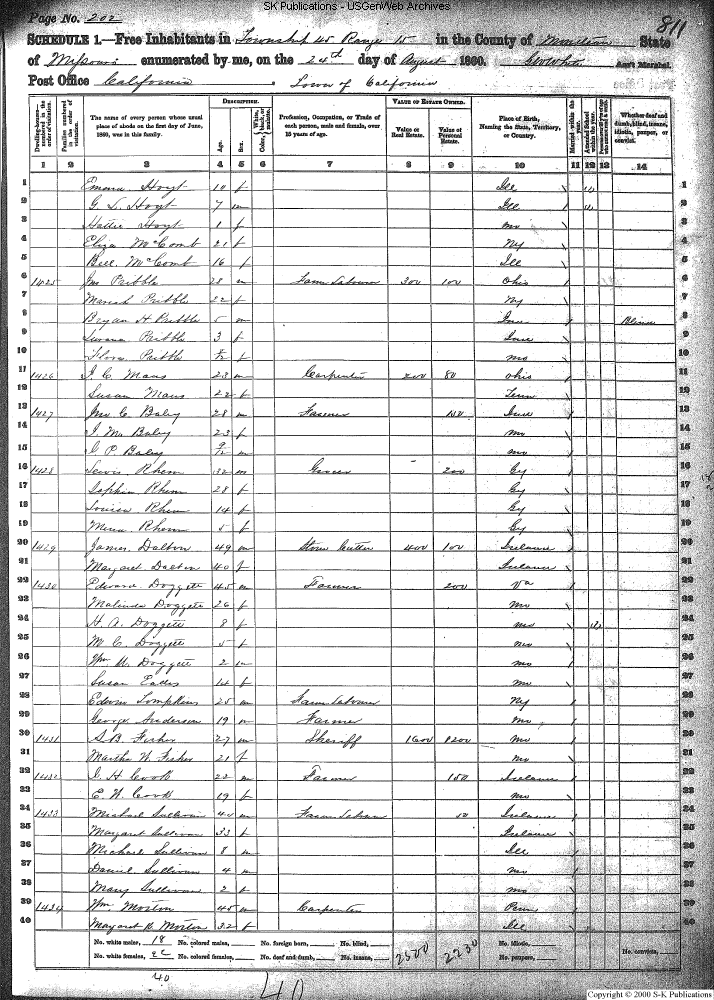 SK Publications - USGenWeb Archives
Page No. 202
811
SCHEDULE 1.—Free Inhabitants in Township 45 Range 15 in the County of Moniteau State
of Missouri enumerated by me, on the 24th day of August 1860. Ass't Marshal.
Post Office California Town of California
DESCRIPTION. VALUE OF ESTATE OWNED.
Dwelling-houses—numbered in the order of visitation. Families numbered in the order of visitation. The name of every person whose usual place of abode on the first day of June, 1860, was in this family. Age. Sex. Color, White, black, or mulatto. Profession, Occupation, or Trade of each person, male and female, over 15 years of age. Value of Real Estate. Value of Personal Estate. Place of Birth, Naming the State, Territory, or Country. Married within the year. Attended School within the year. Whether deaf and dumb, blind, insane, idiotic, pauper, or convict.
1 2 3 4 5 6 7 8 9 10 11 12 13 14
1 Emma Hoyt 10 f Ill 1
2 G. L. Hoyt 7 m Ill 2
3 Hattie Hoyt 1 f Mo 3
4 Eliza McComb 21 f Ny 4
5 Bell McComb 16 f Ill 5
6 1425 Jno Pribble 28 m Farm Labourer 300 100 Ohio 6
7 Mariah Pribble 22 f Ny 7
8 Bryan H Pribble 5 m Ind 8
9 Pribble 3 f Ind 9
10 Flora Pribble f Mo 10
11 1426 J. C. Maus 23 m Carpenter 200 80 Ohio 11
12 Susan Maus 22 f Tenn 12
13 1427 Jno C. Baley 28 m Farmer 150 Ind 13
14 J. M. Baley 23 f Mo 14
15 J. P. Baley 9/12 m Mo 15
16 1428 Lewis Rhem 32 m Grocer 200 Gy 16
17 Sophia Rhem 28 f Gy 17
18 Louisa Rhem 14 f Gy 18
19 Mena Rhem 5 f Gy 19
20 1429 James Dalton 49 m Stone Cutter 400 100 Ireland 20
21 Margaret Dalton 40 f Ireland 21
22 1430 Edward Doggett 45 m Farmer 200 Va 22
23 Malinda Doggett 26 f Mo 23
24 H. A. Doggett 8 f Mo 24
25 M C. Doggett 5 f Mo 25
26 Wm H. Doggett 2 m Mo 26
27 Susan Eades 14 f Mo 27
28 Edwin Tompkins 25 m Farm Labourer Ny 28
29 George Anderson 19 m Farmer Mo 29
30 1431 S. B. Fisher 27 m Sheriff 1600 1200 Mo 30
31 Martha W. Fisher 21 f Mo 31
32 1432 J. H Cook 22 m Farmer 150 Ireland 32
33 E. W. Cook 19 f Mo 33
34 1433 Michael Sullivan 40 m Farm Labourer 50 Ireland 34
35 Margaret Sullivan 33 f Ireland 35
36 Michael Sullivan 8 m Ill 36
37 Daniel Sullivan 4 m Mo 37
38 Mary Sullivan 2 f Mo 38
39 1434 Wm Morton 45 m Carpenter Penn 39
40 Margaret H. Morton 32 f Ill 40
No. white males, 18 No. colored males, No. foreign born, No. blind, 2500 2230 No. idiotic, No. convicts,
No. white females, 22 No. colored females, No. deaf and dumb, No. insane, No. paupers,
40
40
Copyright © 2000 S-K Publications